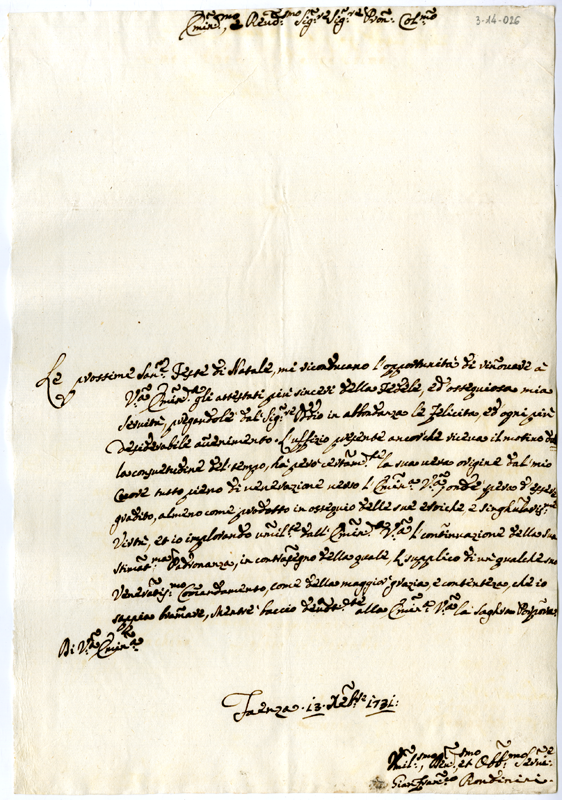 Emin.mo, e Rever.mo Sig.re Sig.re Pron. Col.mo
3-14-026
Le prossime San.me Feste di Natale, mi riconducano l'opportunità di rinovare à
V.ra Emin.za gli attestati più sinceri della fedele, ed ossequiosa mia
Servitù, pregandole dal Sig.re Iddio in abbondanza le felicità, ed ogni più
desiderabile avenimento. L'uffizio presente ancorche riceva il motivo dal
la consuetudine del tempo, hà però certam.te la sua vera origine dal mio
Cuore tutto pieno di venerazione verso l'Emin.za V.ra, onde spero d'esser
gradito, almeno come prodotto in ossequio delle sue eroiche, e singularis.me
Virtù, et io implorando umil.te dall'Emin.za V.ra l'continuazione della sua
stimat.ma Padronanza, in contrapegno della quale, la supplico di un qualche suo
Veneratis.mo Comandamento, come della maggior grazia, e contentezza, che io
sappia bramare, mentre baccio devot.te alla Emin.za V.ra la Saghra Porpora
Di V.ra Emin.za
Faenza. 13. Xbre 1731:
Umil.mo, et Obb.mo Serv.e
Gian Fran.co Rondinini.